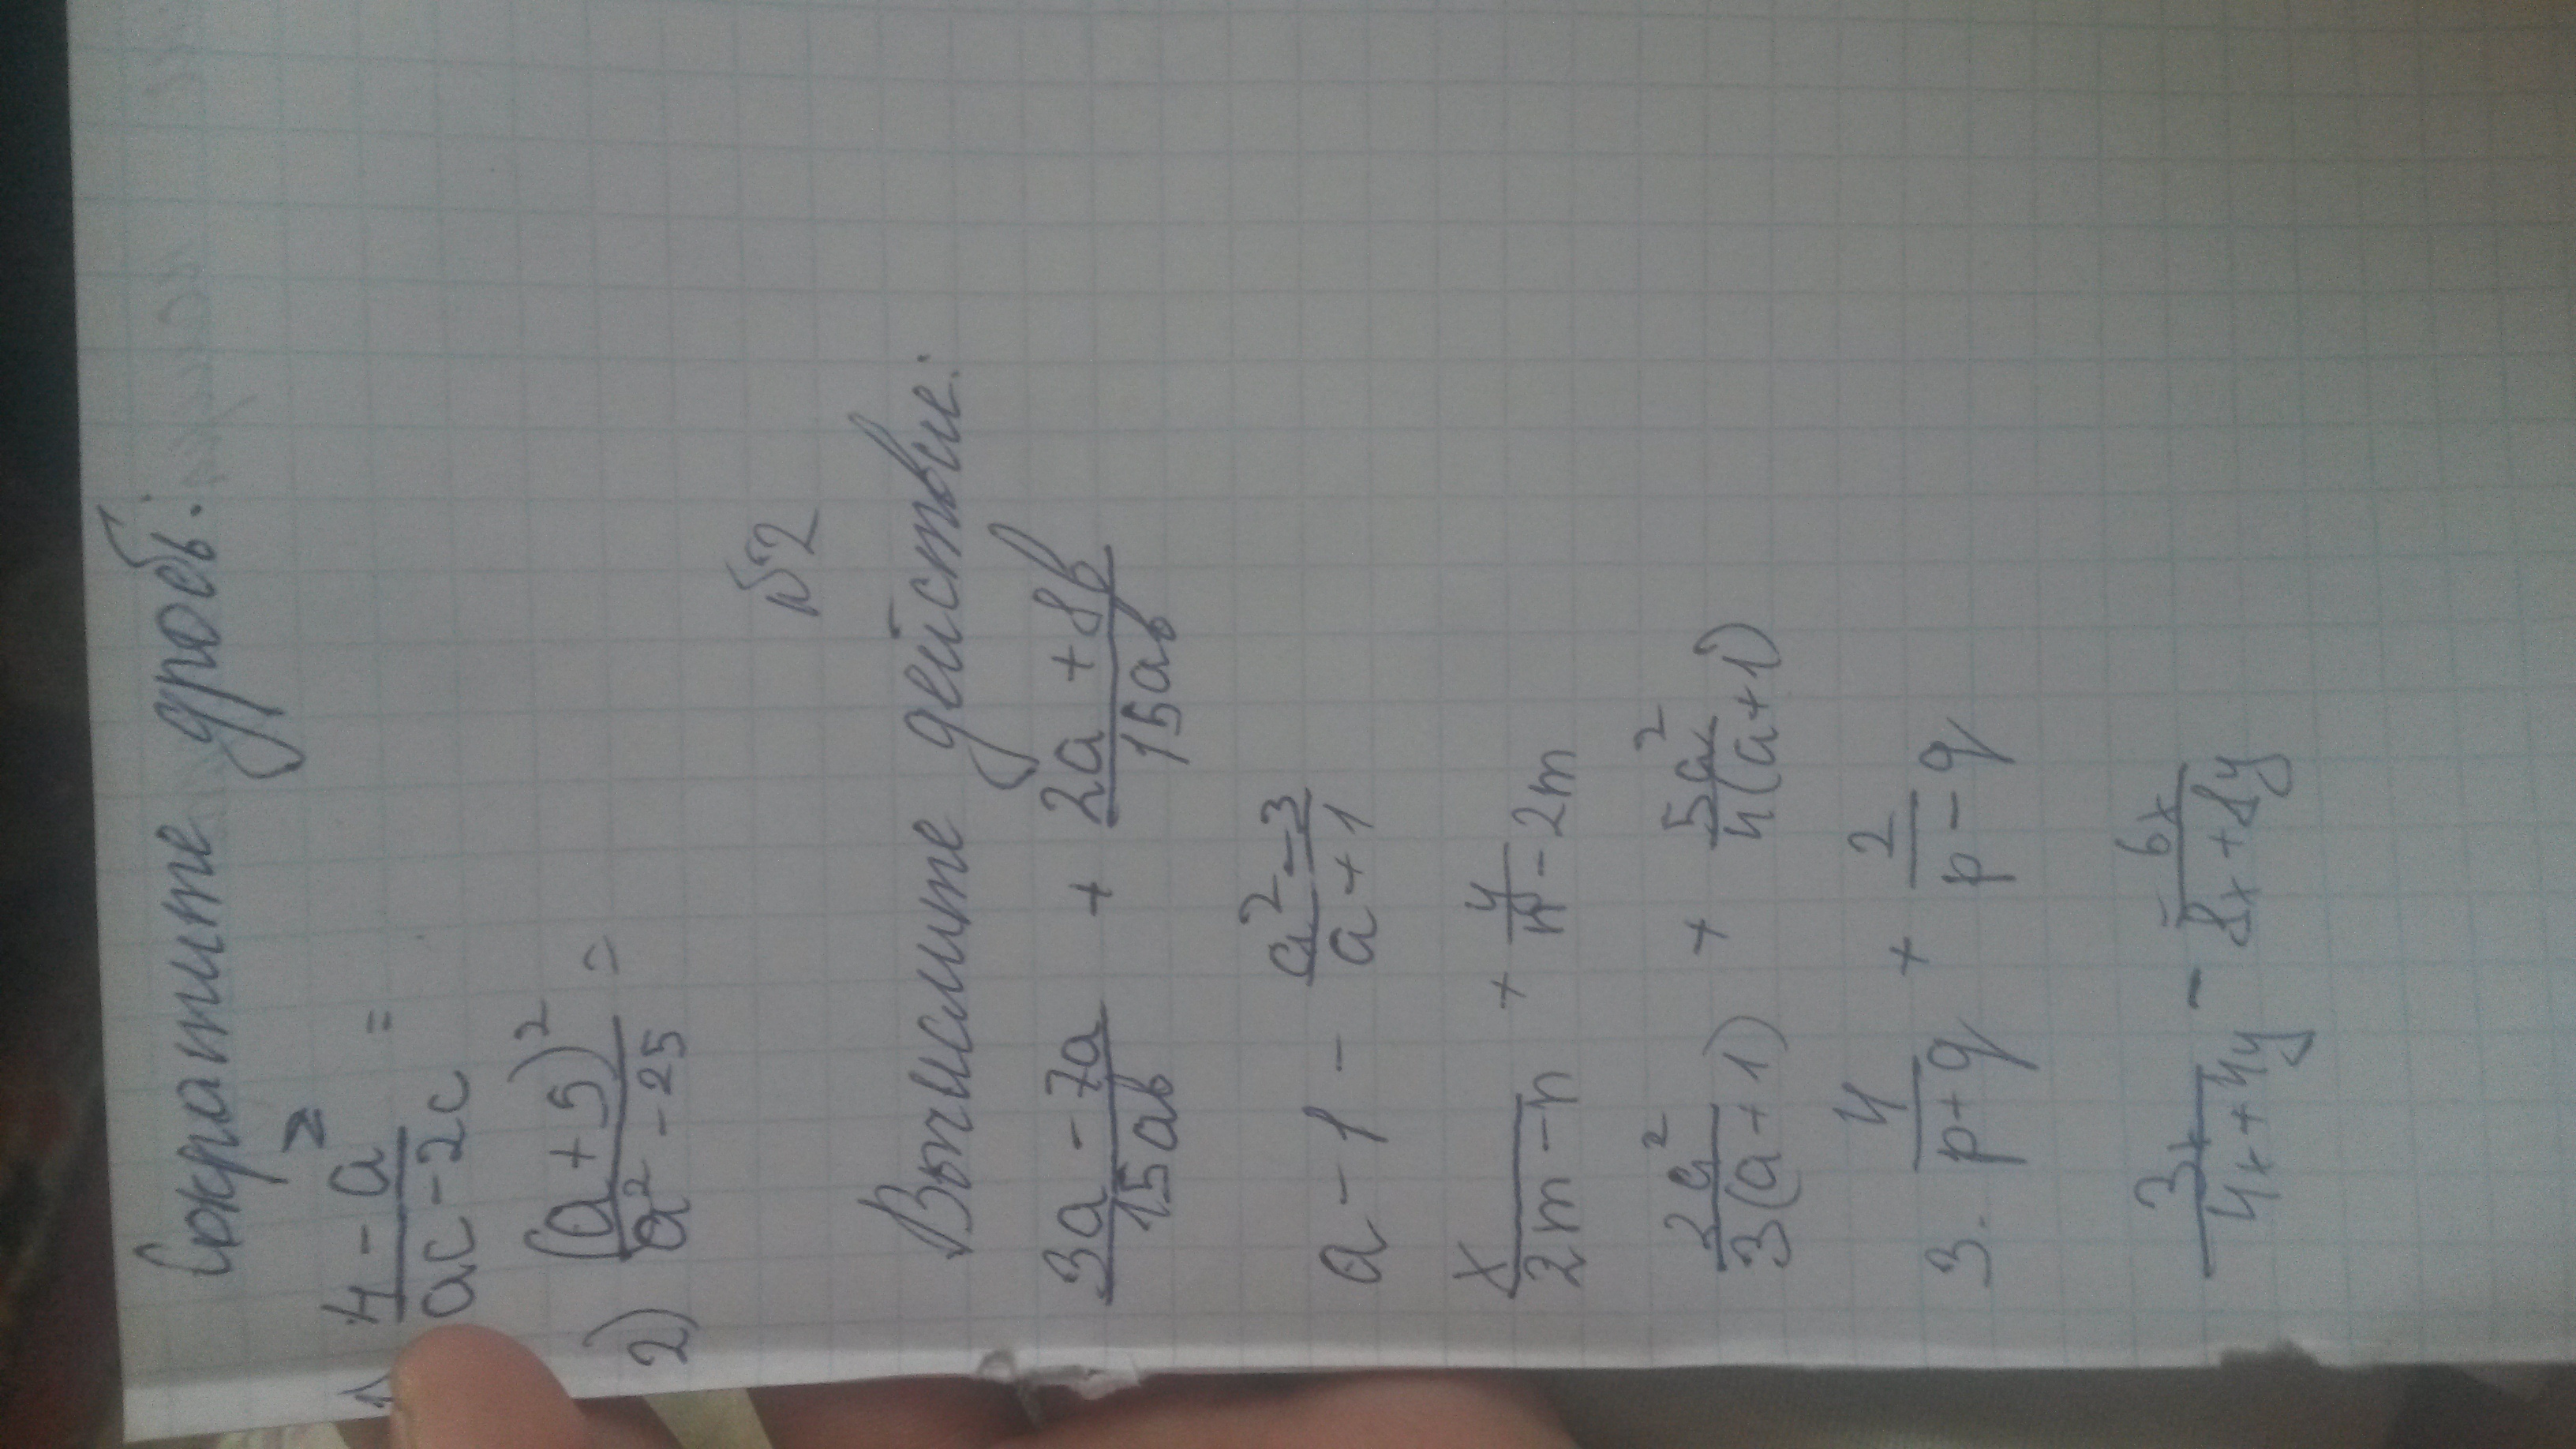 Сократите дробь:
1 (4 - a²)/(ac - 2c) =
2) (a + 5)²/(a² - 25) =
№2
Вычислите действие:
(3a - 7a)/(15ab) + (2a + 8b)/(15ab)
a - 1 - (a² - 3)/(a + 1)
x/(2m - n) + y/(n - 2m)
2a²/(3(a + 1)) + 5a²/(4(a + 1))
3. 4/(p + q) + 2/(p - q)
3x/(4x + 4y) - 6x/(8x + 8y)